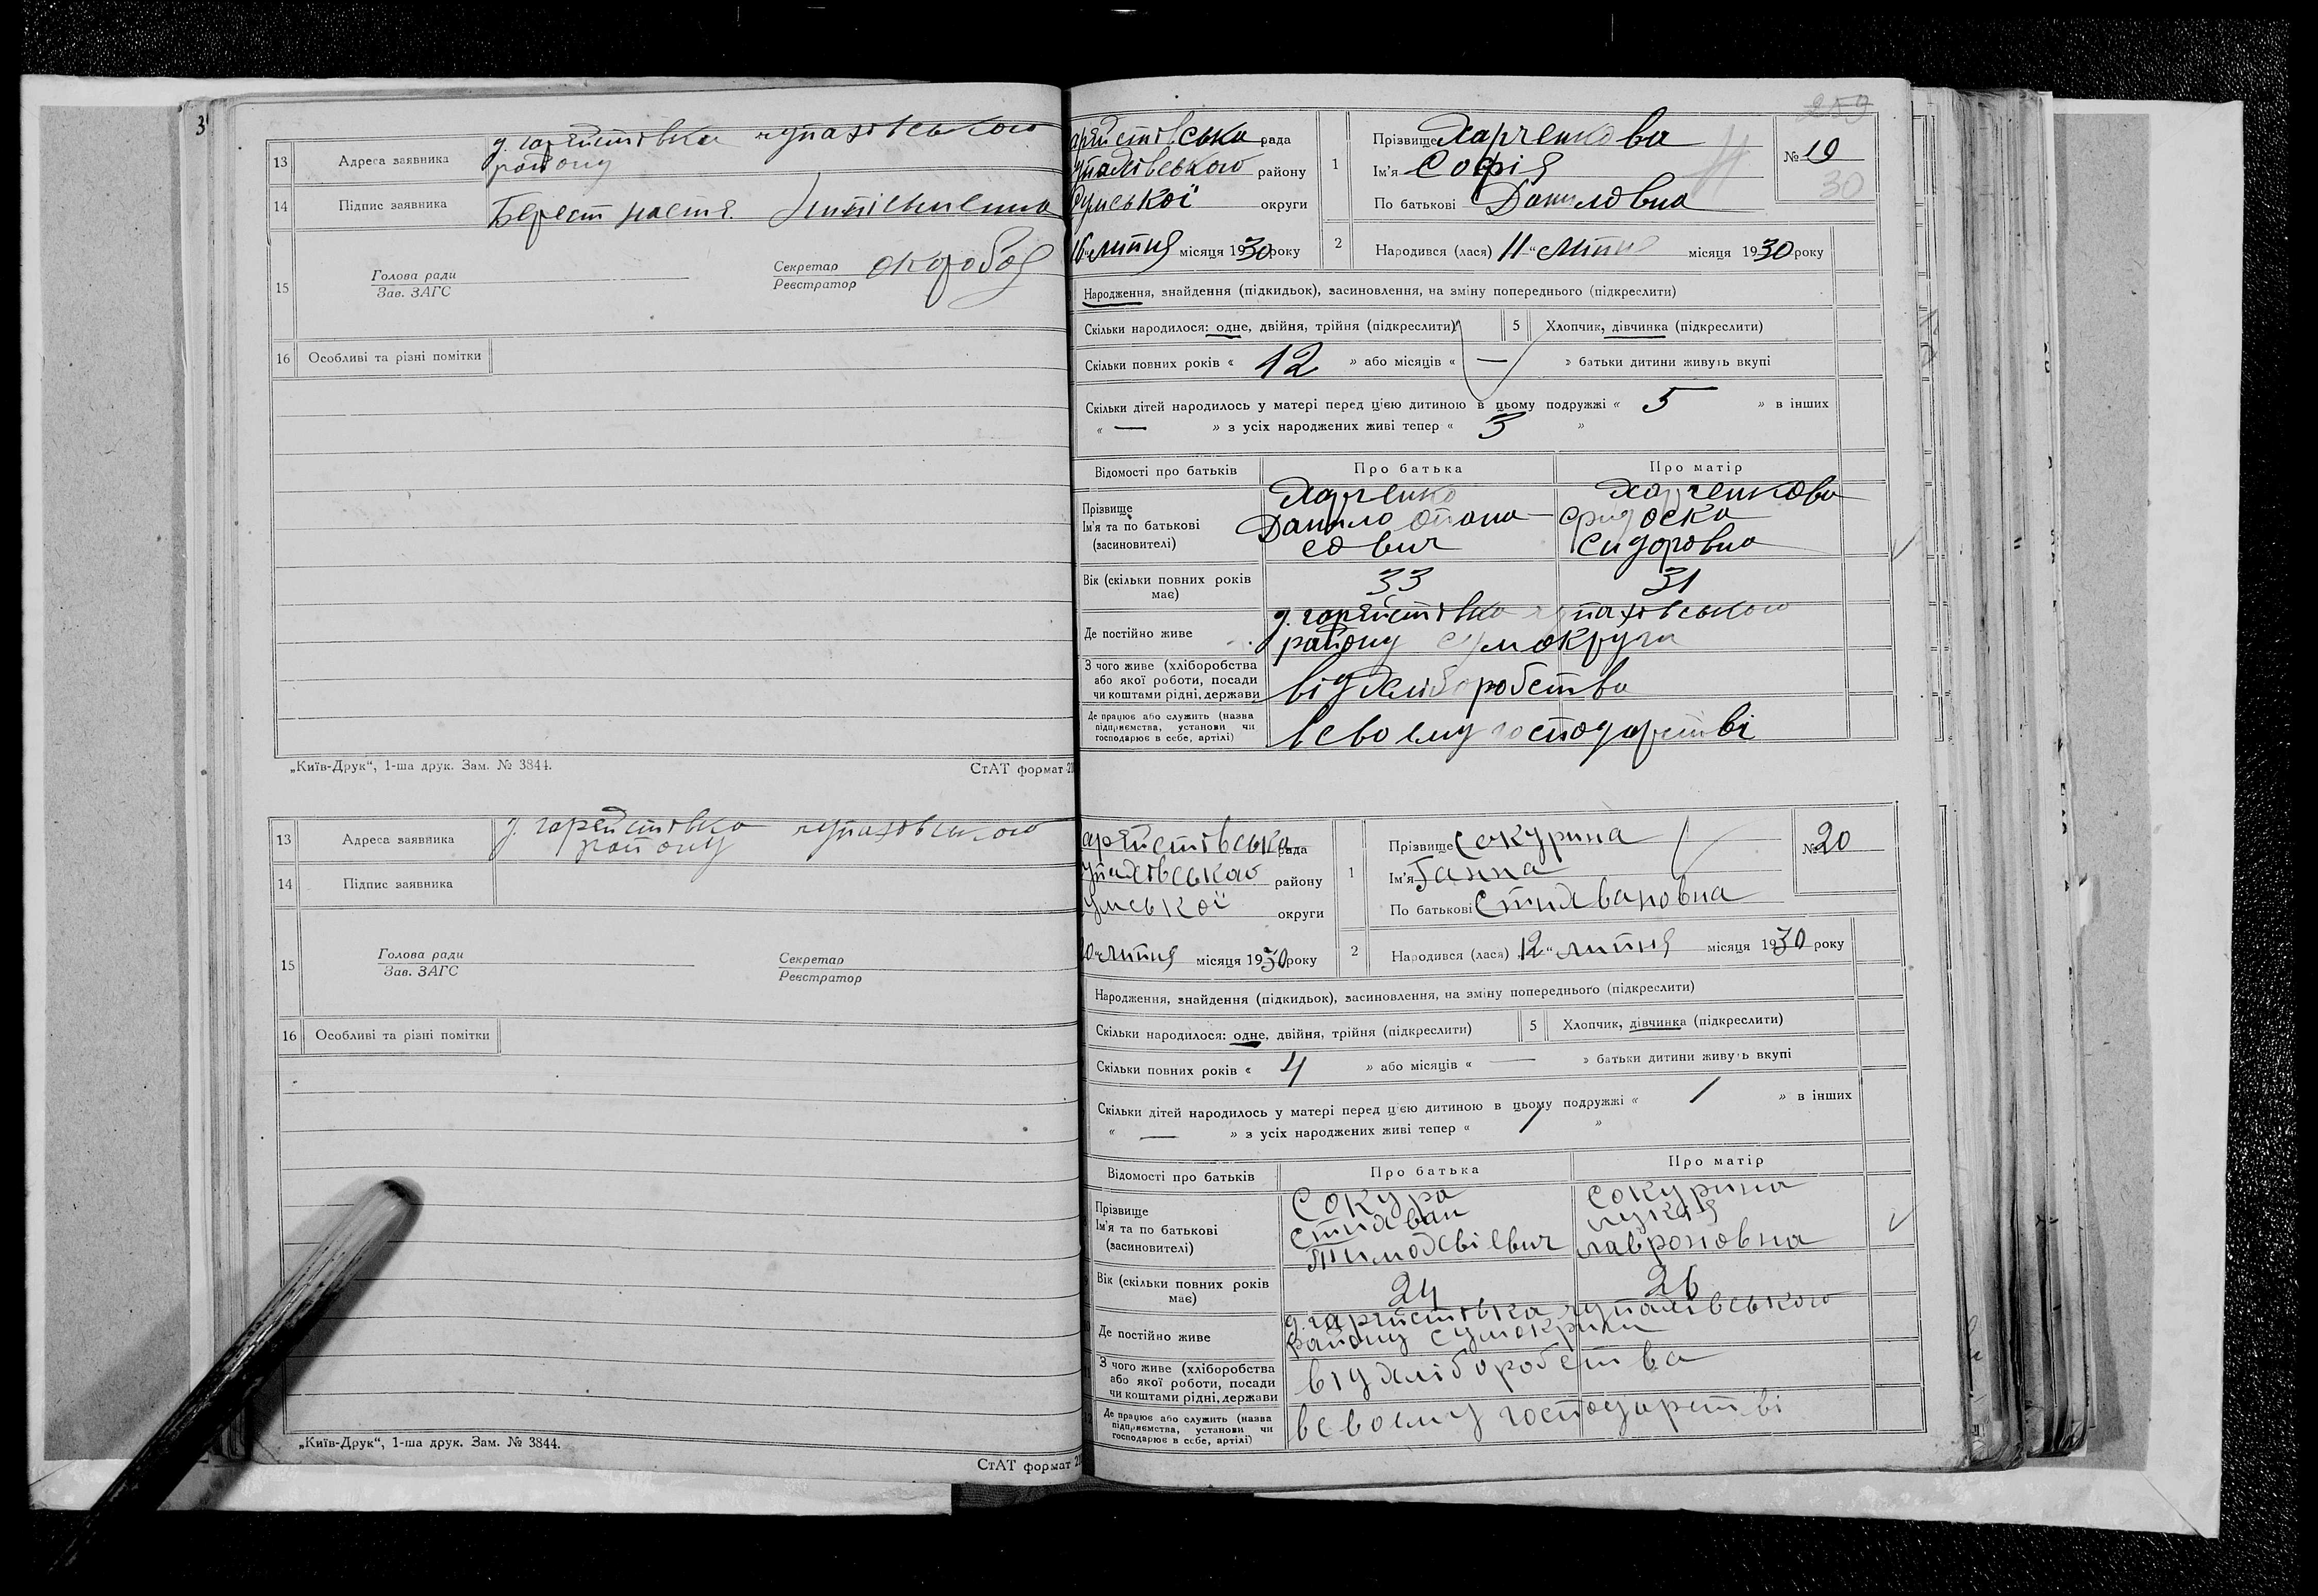 3
13 Адреса заявника
району
14 Підпис заявника
Берест настя
15 Голова ради
Зав. ЗАГС
Секретар
Реєстратор
16 Особливі та різні помітки
„Київ-Друк“, 1-ша друк. Зам. № 3844.
СтАТ формат
13 Адреса заявника
району
14 Підпис заявника
15 Голова ради
Зав. ЗАГС
Секретар
Реєстратор
16 Особливі та різні помітки
„Київ-Друк“, 1-ша друк. Зам. № 3844.
СтАТ формат
259
рада
району
Сумської округи
16 липня місяця 1930 року
1 Прізвище Харченкова
Ім'я Софія
По батькові Даниловна
№ 19
30
2 Народився (лася) 11 липня місяця 1930 року
Народження, знайдення (підкидьок), засиновлення, на зміну попереднього (підкреслити)
Скільки народилося: одне, двійня, трійня (підкреслити)
5 Хлопчик, дівчинка (підкреслити)
Скільки повних років « 12 » або місяців « — » батьки дитини живуть вкупі
Скільки дітей народилось у матері перед цією дитиною в цьому подружжі « 5 » в інших
« — » з усіх народжених живі тепер « 3 »
Відомості про батьків
Про батька
Про матір
Прізвище
Ім'я та по батькові
(засиновителі)
Харченко
Данило Опана
сович
Харченкова
Сидоровна
Вік (скільки повних років має)
33
31
Де постійно живе
району сумокруги
З чого живе (хліборобства
або якої роботи, посади
чи коштами рідні, держави
від хліборобства
Де працює або служить (назва
підприємства, установи чи
господарює в себе, артілі)
в своєму господарстві
рада
району
округи
липня місяця 1930 року
1 Прізвище Сокурина
Ім'я Ганна
По батькові Стихвановна
№ 20
2 Народився (лася) 12 липня місяця 1930 року
Народження, знайдення (підкидьок), засиновлення, на зміну попереднього (підкреслити)
Скільки народилося: одне, двійня, трійня (підкреслити)
5 Хлопчик, дівчинка (підкреслити)
Скільки повних років « 4 » або місяців « — » батьки дитини живуть вкупі
Скільки дітей народилось у матері перед цією дитиною в цьому подружжі « 1 » в інших
« — » з усіх народжених живі тепер « 1 »
Відомості про батьків
Про батька
Про матір
Прізвище
Ім'я та по батькові
(засиновителі)
Сокура
Стихван
Тимохвієвич
Сокурина
лукія
Вік (скільки повних років має)
24
26
Де постійно живе
району сумокруги
З чого живе (хліборобства
або якої роботи, посади
чи коштами рідні, держави
від хліборобства
Де працює або служить (назва
підприємства, установи чи
господарює в себе, артілі)
в своєму господарстві